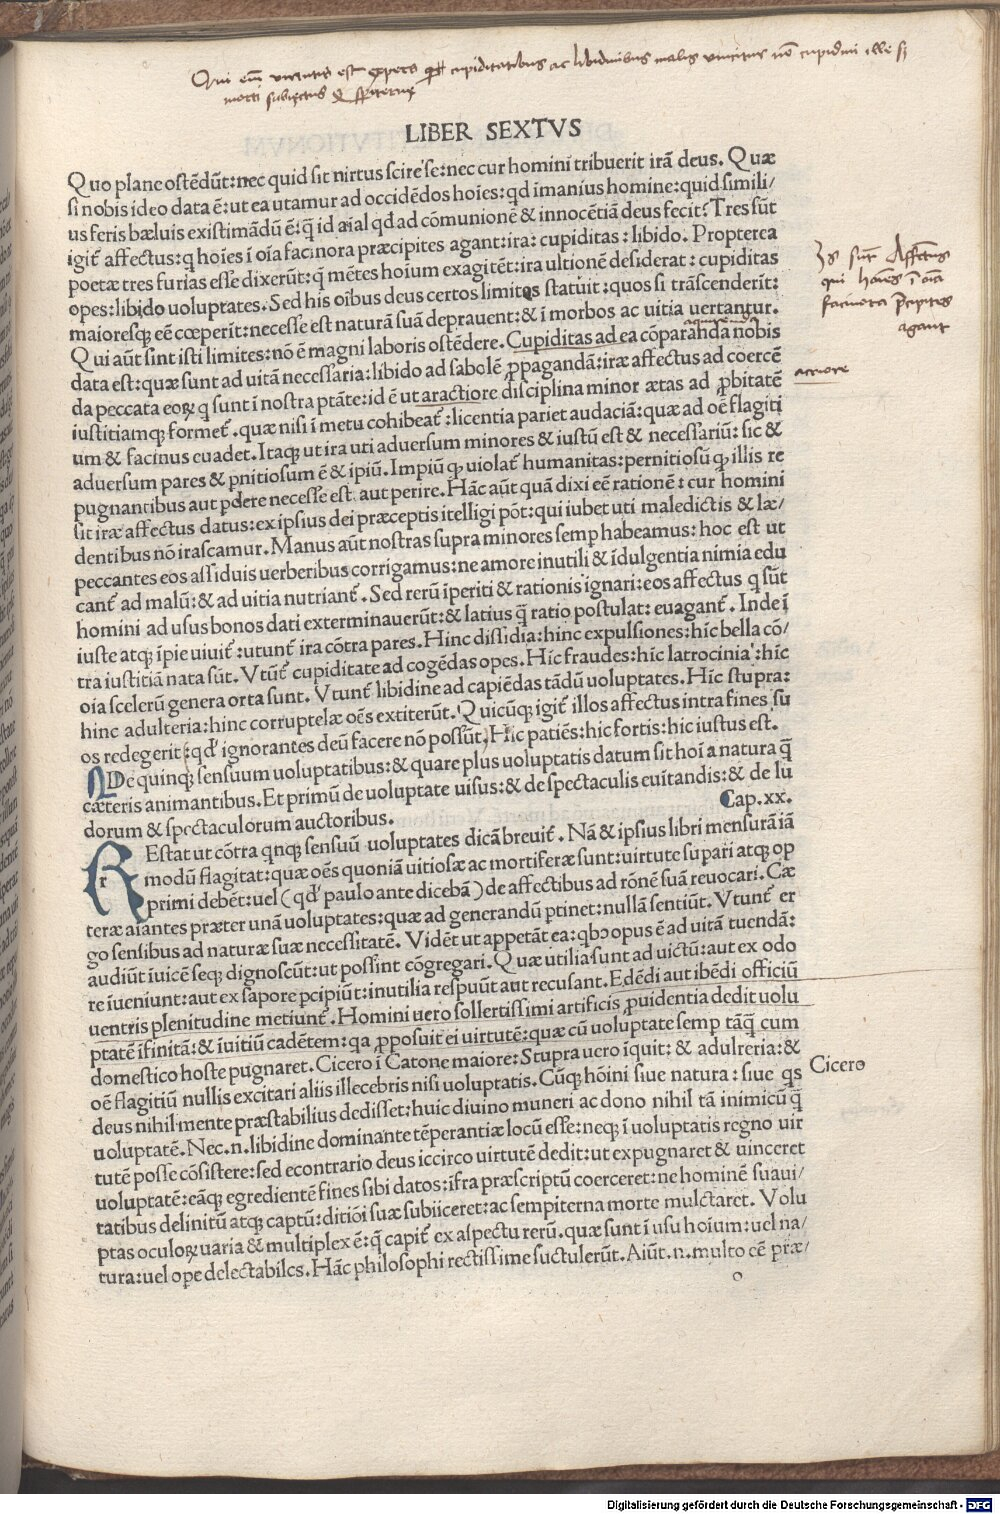 Qui em̄ uirtutis est opera cupiditatibus ac libidinibus malis uincitur nō cupidini ille sȝ
morti subiectus & sp̄iternę
LIBER SEXTVS
Quo plane ostēdūt:nec quid sit nirtus scire se:nec cur homini tribuerit irā deus. Quæ
si nobis ideo data ē:ut ea utamur ad occidēdos hoīes:qd īmanius homine:quid simili/
us feris bæluis existimādū ē:q̄ id aīal qd ad cōmunionē & innocētiā deus fecit? Tres sūt
igiť affectus:q hoīes ī oīa facinora præcipites agant:ira: cupiditas : libido. Propterea
poetæ tres furias esse dixerūt:q̄ mētes hoium exagitēt:ira ultionē desiderat : cupiditas
opes:libido uoluptates. Sed his oībus deus certos limites statuit : quos si trāscenderit:
maioresqȝ eē cœperit:necesse est naturā suā deprauent:& ī morbos ac uitia uertantur.
Qui aūt sint isti limites:nō ē magni laboris ostēdere. Cupiditas ad ea cōparanda nobis
data est:quæ sunt ad uitā necessaria:libido ad sabolē ꝓpagandā:iræ affectus ad coercē
da peccata eoꝝ q sunt ī nostra ptāte:id ē ut aractiore disciplina minor ætas ad ꝓbitatē
iustitiamqȝ formeť. quæ nisi ī metu cohibeať : licentia pariet audaciā: quæ ad oē flagiti
um & facinus euadet. Itaqȝ ut ira uti aduersum minores & iustū est & necessariū: sic &
aduersum pares & ꝑnitiosum ē & ipiū. Impiū qȝ uiolať humanitas: pernitiosū qȝ illis re
pugnantibus aut ꝑdere necesse est aut perire. Hāc aūt quā dixi eē rationē : cur homini
sit iræ affectus datus: ex ipsius dei præceptis itelligi pōt: qui iubet uti maledictis & læ/
dentibus nō irascamur. Manus aūt nostras supra minores semꝑ habeamus: hoc est ut
peccantes eos assiduis uerberibus corrigamus: ne amore inutili & īdulgentia nimia edu
canť ad malū: & ad uitia nutrianť. Sed rerū īperiti & rationis ignari: eos affectus q sūt
homini ad usus bonos dati exterminauerūt: & latius q̄ ratio postulat: euaganť. Inde ī
iuste atqȝ īpie uiuiť: utunť ira cōtra pares. Hinc dissidia: hinc expulsiones: hīc bella cō/
tra iustitiā nata sūt. Vtūť cupiditate ad cogēdas opes. Hīc fraudes: hīc latrocinia: hīc
oīa scelerū genera orta sunt. Vtunť libidine ad capiēdas tādū uoluptates. Hīc stupra:
hinc adulteria: hinc corruptelæ oēs extiterūt. Quicūqȝ igiť illos affectus intra fines su
os redegerit: qd' ignorantes deū facere nō possūt. Hic patiēs: hic fortis: hic iustus est.
De quinqȝ sensuum uoluptatibus: & quare plus uoluptatis datum sit hoī a natura q̄
cæteris animantibus. Et primū de uoluptate uisus: & de spectaculis euitandis: & de lu
dorum & spectaculorum auctoribus. Cap.xx.
REstat ut cōtra qnqȝ sensuū uoluptates dicā breuiť. Nā & ipsius libri mensurā iā
modū flagitat: quæ oēs quoniā uitiosæ ac mortiferæ sunt: uirtute supari atqȝ op
primi debēt: uel (qd' paulo ante dicebā) de affectibus ad rōnē suā reuocari. Cæ
teræ aīantes præter unā uoluptates: quæ ad generandū ꝑtinet: nullā sentiūt. Vtunť er
go sensibus ad naturæ suæ necessitatē. Vidēt ut appetāt ea: qbꝯ opus ē ad uitā tuendā:
audiūt īuicē seqȝ dignoscūt: ut possint cōgregari. Quæ utilia sunt ad uictū: aut ex odo
re īueniunt: aut ex sapore ꝑcipiūt: inutilia respuūt aut recusant. Edēdi aut ibēdi officiū
uentris plenitudine metiunť. Homini uero sollertissimi artificis ꝓuidentia dedit uolu
ptatē īfinitā: & īuitiū cadētem: qa ꝓposuit ei uirtutē: quæ cū uoluptate semꝑ tāq̄ cum
domestico hoste pugnaret. Cicero ī Catone maiore: Stupra uero īquit: & adulreria: &
oē flagitiū nullis excitari aliis illecebris nisi uoluptatis. Cūqȝ hōini siue natura : siue qs
deus nihil mente præstabilius dedisset: huic diuino muneri ac dono nihil tā inimicū q̄
uoluptatē. Nec.n.libidine dominante tēperantiæ locū esse: neqȝ ī uoluptatis regno uir
tutē posse cōsistere: sed econtrario deus iccirco uirtutē dedit: ut expugnaret & uinceret
uoluptatē: eāqȝ egredientē fines sibi datos: īfra præscriptū coerceret: ne hominē suaui/
tatibus delinitū atqȝ captū: ditiōi suæ subiiceret: ac sempiterna morte mulctaret. Volu
ptas oculoꝝ uaria & multiplex ē: q̄ capiť ex aspectu rerū. quæ sunt ī usu hoium: uel na/
tura: uel ope delectabiles. Hāc philosophi rectissime suctulerūt. Aiūt.n.multo eē præ/
o
3s sunt Affectus
qui hoīes ī oīa
facinora p̄cipites
agant
acriore
Cicero
Digitalisierung gefördert durch die Deutsche Forschungsgemeinschaft - DFG